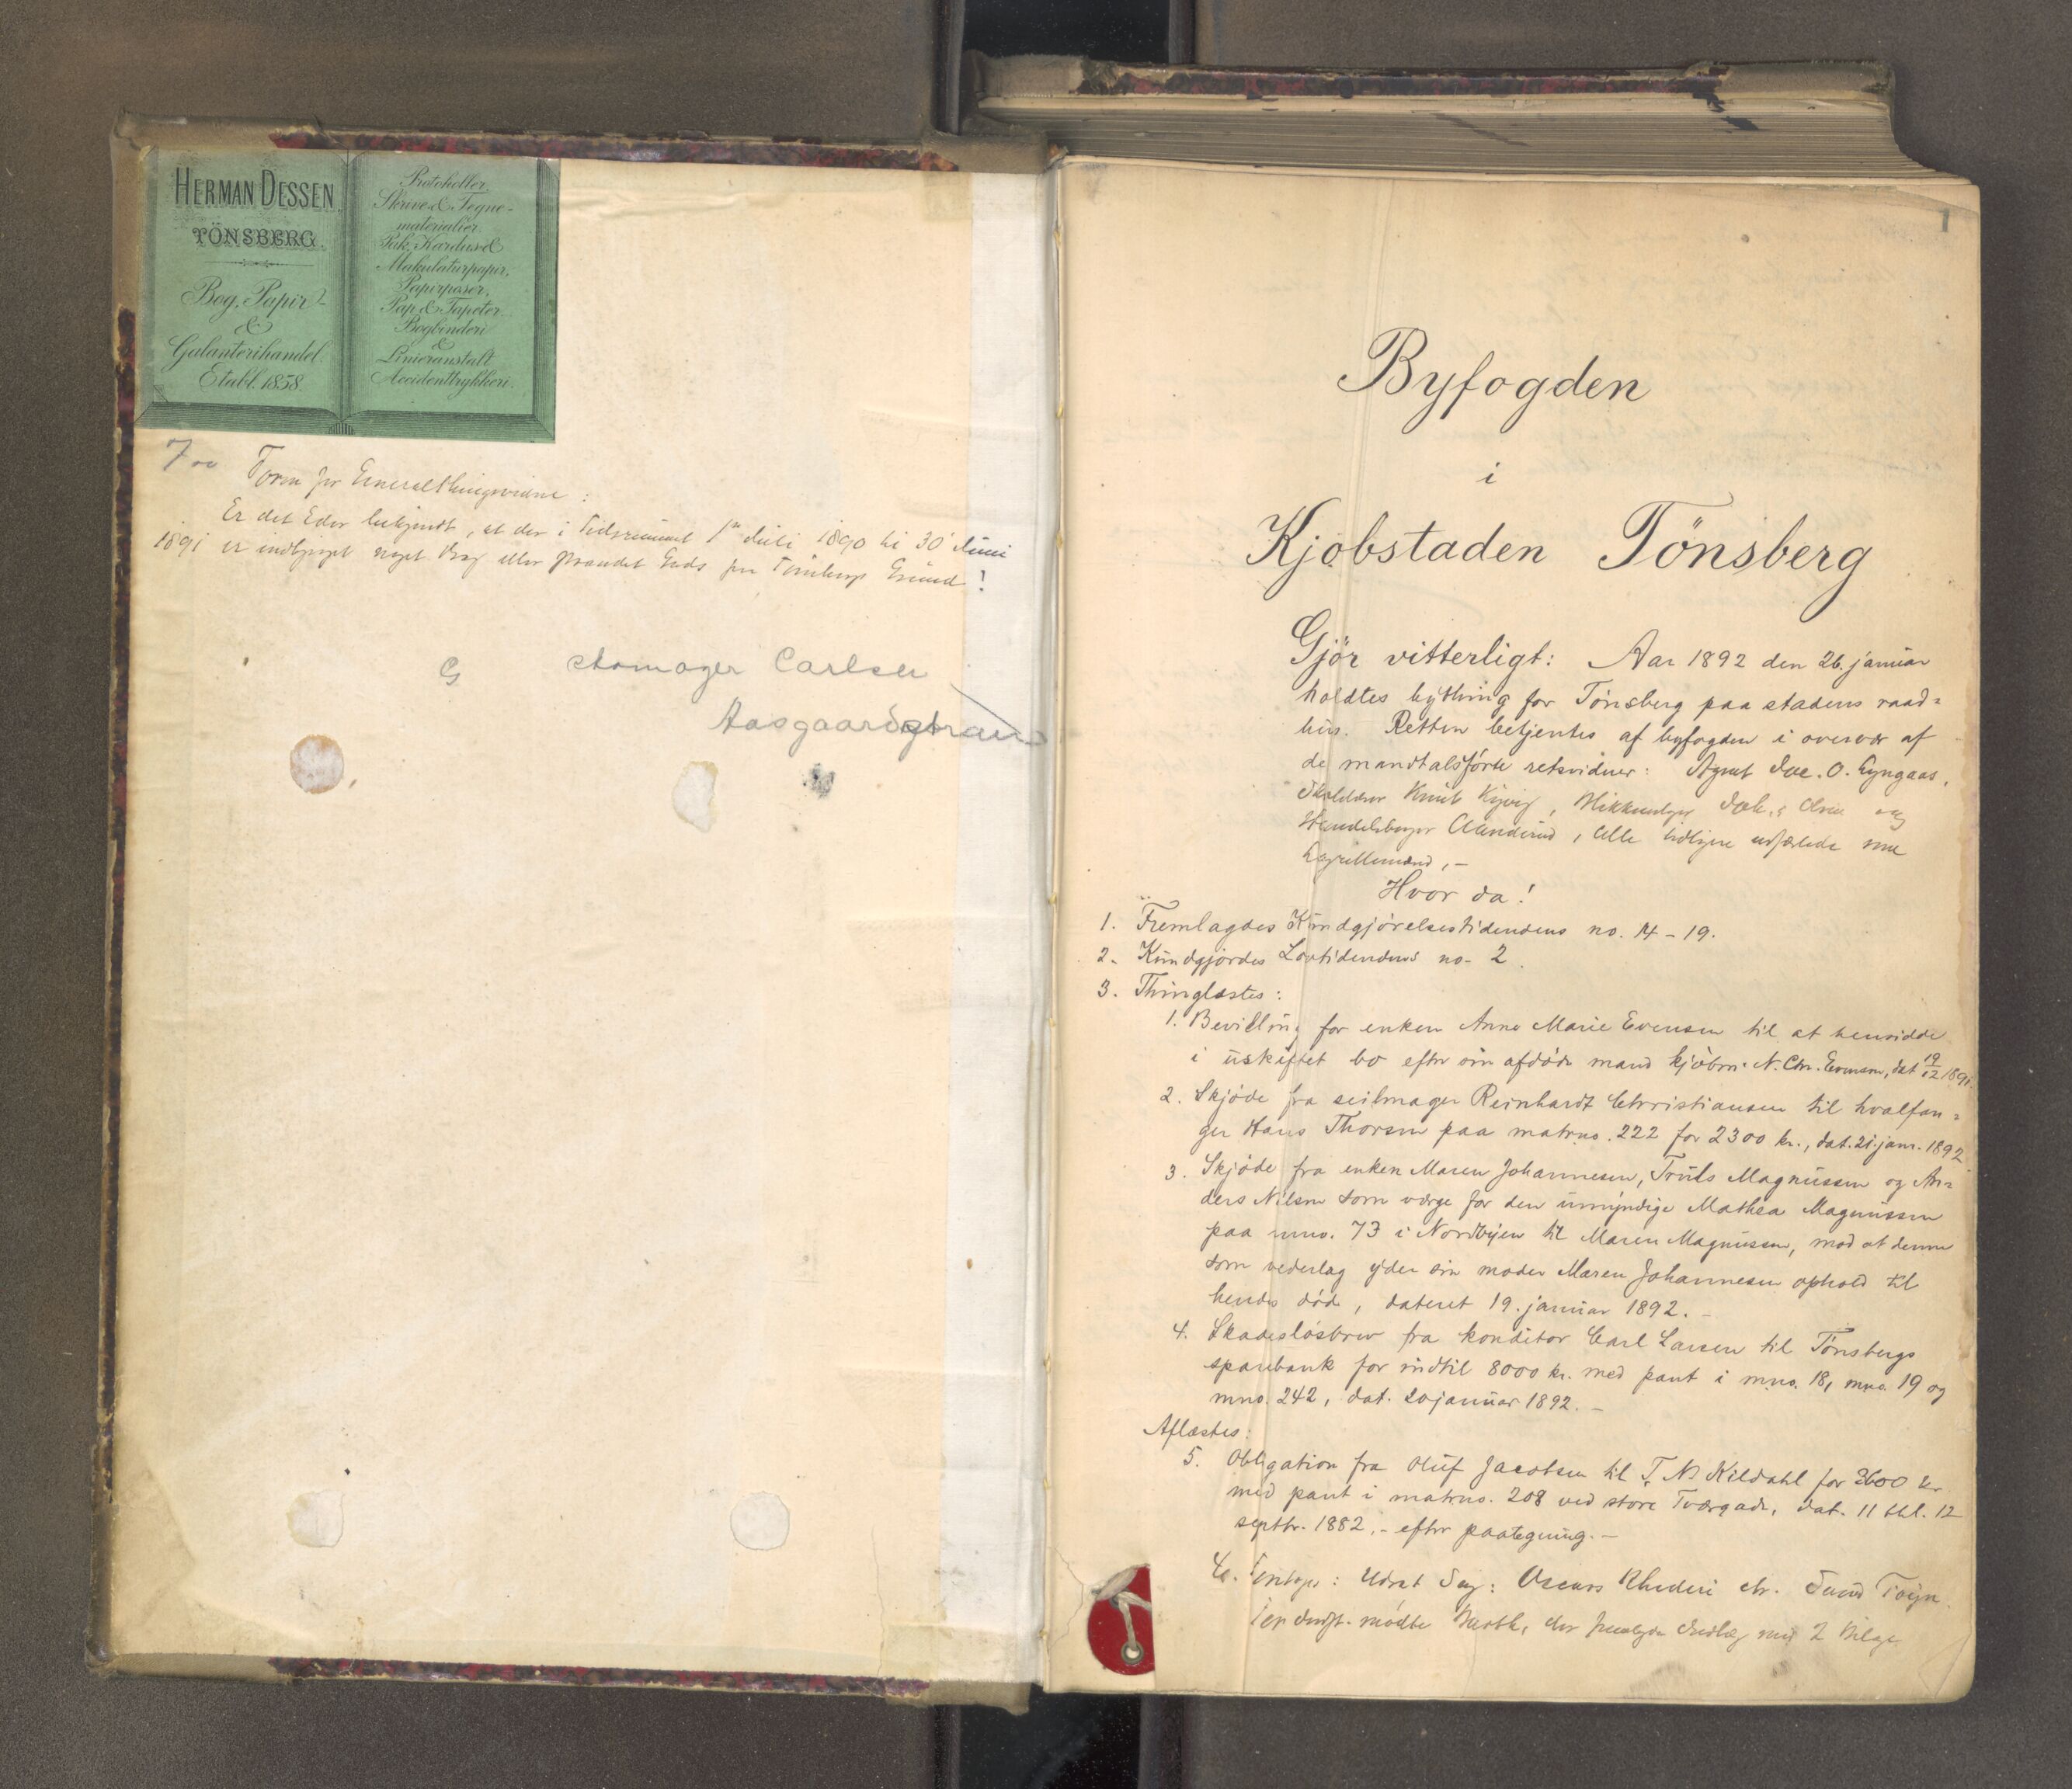 HERMAN DESSEN.
TÖNSBERG.
Bog, Papir
&
Galanterihandel.
Etabl. 1858.
Protokoller,
Skrive & Tegne-
materialier.
Pak, Kardus &
Makulaturpapir,
Papirposer,
Pap & Tapeter
Bogbinderi
&
Linieranstalt
Accidenttrykkeri.
Form for Generalthingsvidne:
Er det Eder bekjendt, at der i Tidsrummet 1ste Juli 1890 til 30 Juni
1891 er indbjerget noget Vrag eller strandet Gods paa Tönsbergs Grund!
Carlsen
Aasgaardstrand
1
Byfogden
i
Kjøbstaden Tönsberg
Gjör vitterligt: Aar 1892 den 26. januar
holdtes bything for Tönsberg paa stadens raad=
hus. Retten betjentes af byfogden i overvær af
de mandtalsförte retsvidner: Agent Jac. O.
Knut , Joh.s Olsen og
, alle tidligere som
Lagrettemænd, –
Hvor da!
1. Fremlagdes Kundgjörelsestidendens no. 14–19.
2. Kundgjordes Lovtidendens no. 2.
3. Thinglæstes:
1. Bevilling for enken Anne Marie Evensen til at hensidde
i uskiftet bo efter sin afdøde mand kjöbm. N. Chr. Evensen, dat 19/12 1891.
2. Skjöde fra seilmager Reinhardt Christiansen til hvalfan=
ger Hans Thorsen paa matrno. 222 for 2300 kr., dat. 21. janr. 1892.
3. Skjöde fra enken Maren Johannesen, Truls Magnussen og An=
ders Nilsen som værge for den umyndige Mathea Magnussen
paa mno. 73 i Nordbyen til Maren Magnussen, mod at denne
som vederlag yder sin moder Maren Johannesen ophold til
hendes död, dateret 19. januar 1892. –
4. Skadeslösbrev fra konditor Carl Larsen til Tönsbergs
sparebank for indtil 8000 kr. med pant i mno. 18, mno. 19 og
mno. 242, dat. 20 januar 1892. –
Aflæstes:
5. Obligation fra Oluf Jacobsen til T. N. Kildahl for 3600 kr
med pant i matrno. 208 ved store Tværgade, dat. 11 thl. 12
septbr. 1882, – efter paategning. –
4. Foretoges: Udsat Sag: Oscars Rhederi ctr.
mödte , der fremlagde Indlæg med 2 Bilage